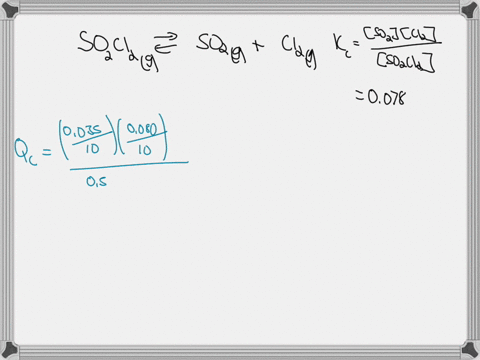 SO₂Cl₂(g) ⇌ SO₂(g) + Cl₂(g) Kc = [SO₂][Cl₂] / [SO₂Cl₂]
= 0.078
Qc = (0.035/10)(0.080/10) / 0.5